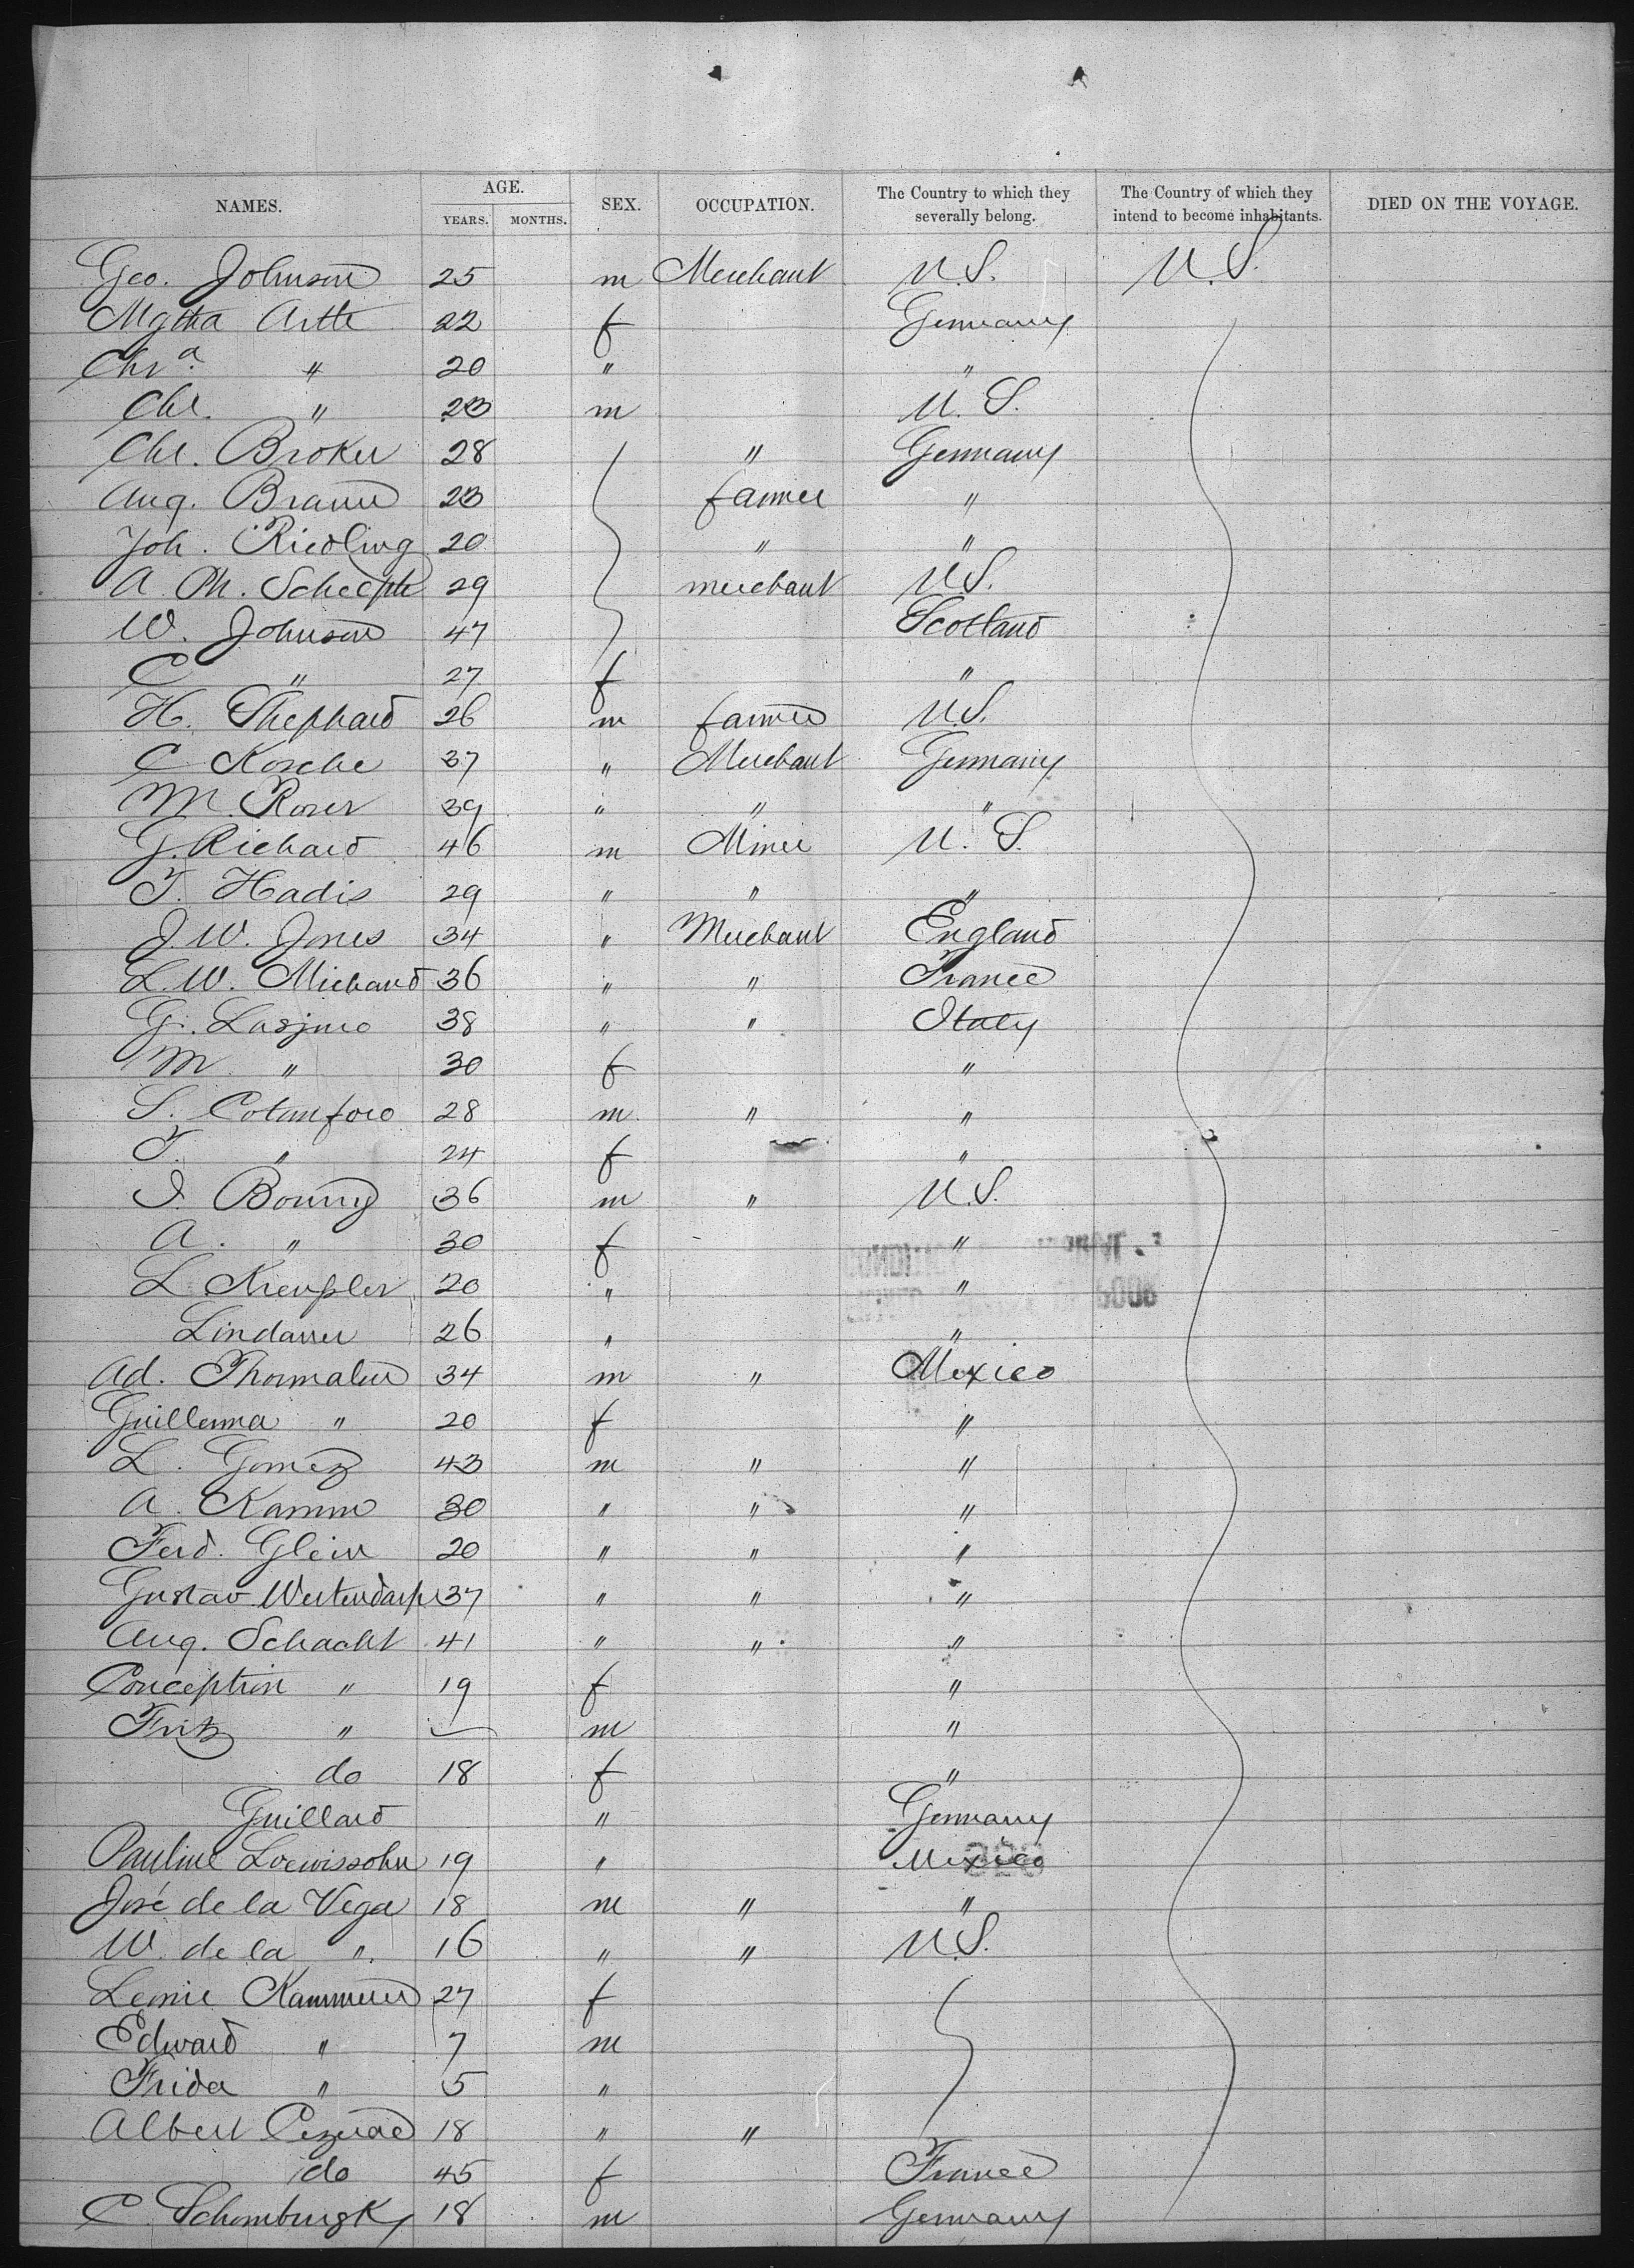 NAMES. AGE. SEX. OCCUPATION. The Country to which they severally belong. The Country of which they intend to become inhabitants. DIED ON THE VOYAGE.
YEARS. MONTHS.
Geo. Johnson 25 m Merchant U.S. U.S.
Mgtha Artte 22 f Germany
Chra. " 20 " "
Chr. " 23 m U.S.
Chr. Broker 28 " Germany
Aug. Braun 23 farmer "
Joh. Riedling 20 " "
A. Ph. Schecple 29 merchant U.S.
W. Johnson 47 Scotland
C " 27 f "
H. Shephard 26 m farmer U.S.
C Kosche 37 " Merchant Germany
M. Roser 39 " " "
G. Richard 46 m Miner U.S.
T. Hadis 29 " " "
J. W. Jones 34 " Merchant England
L. W. Michaud 36 " " France
G. 38 " " Italy
M " 30 f "
S. 28 m " "
T. " 24 f "
I. 36 m " U.S.
A. " 30 f "
L 20 " "
26 " "
Ad. Thormalen 34 m " Mexico
Guillerma " 20 f "
L. Gomez 43 m " "
A. Kamm 30 " " "
Ferd. Glein 20 " " "
Gustav Westendarp 37 " " "
Aug. Schacht 41 " " "
Conception " 19 f "
Fritz " — m "
do 18 f "
Guillard " Germany
Pauline Loewissohn 19 " Mexico
José de la Vega 18 m " "
W. de la " 16 " " U.S.
27 f
Edward " 7 m
Frida " 5 "
Albert 18 " "
do 45 f France
C. Schomburgk 18 m Germany